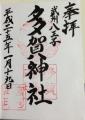 奉拝
武州八王子
多賀神社
平成二十五年一月十九日